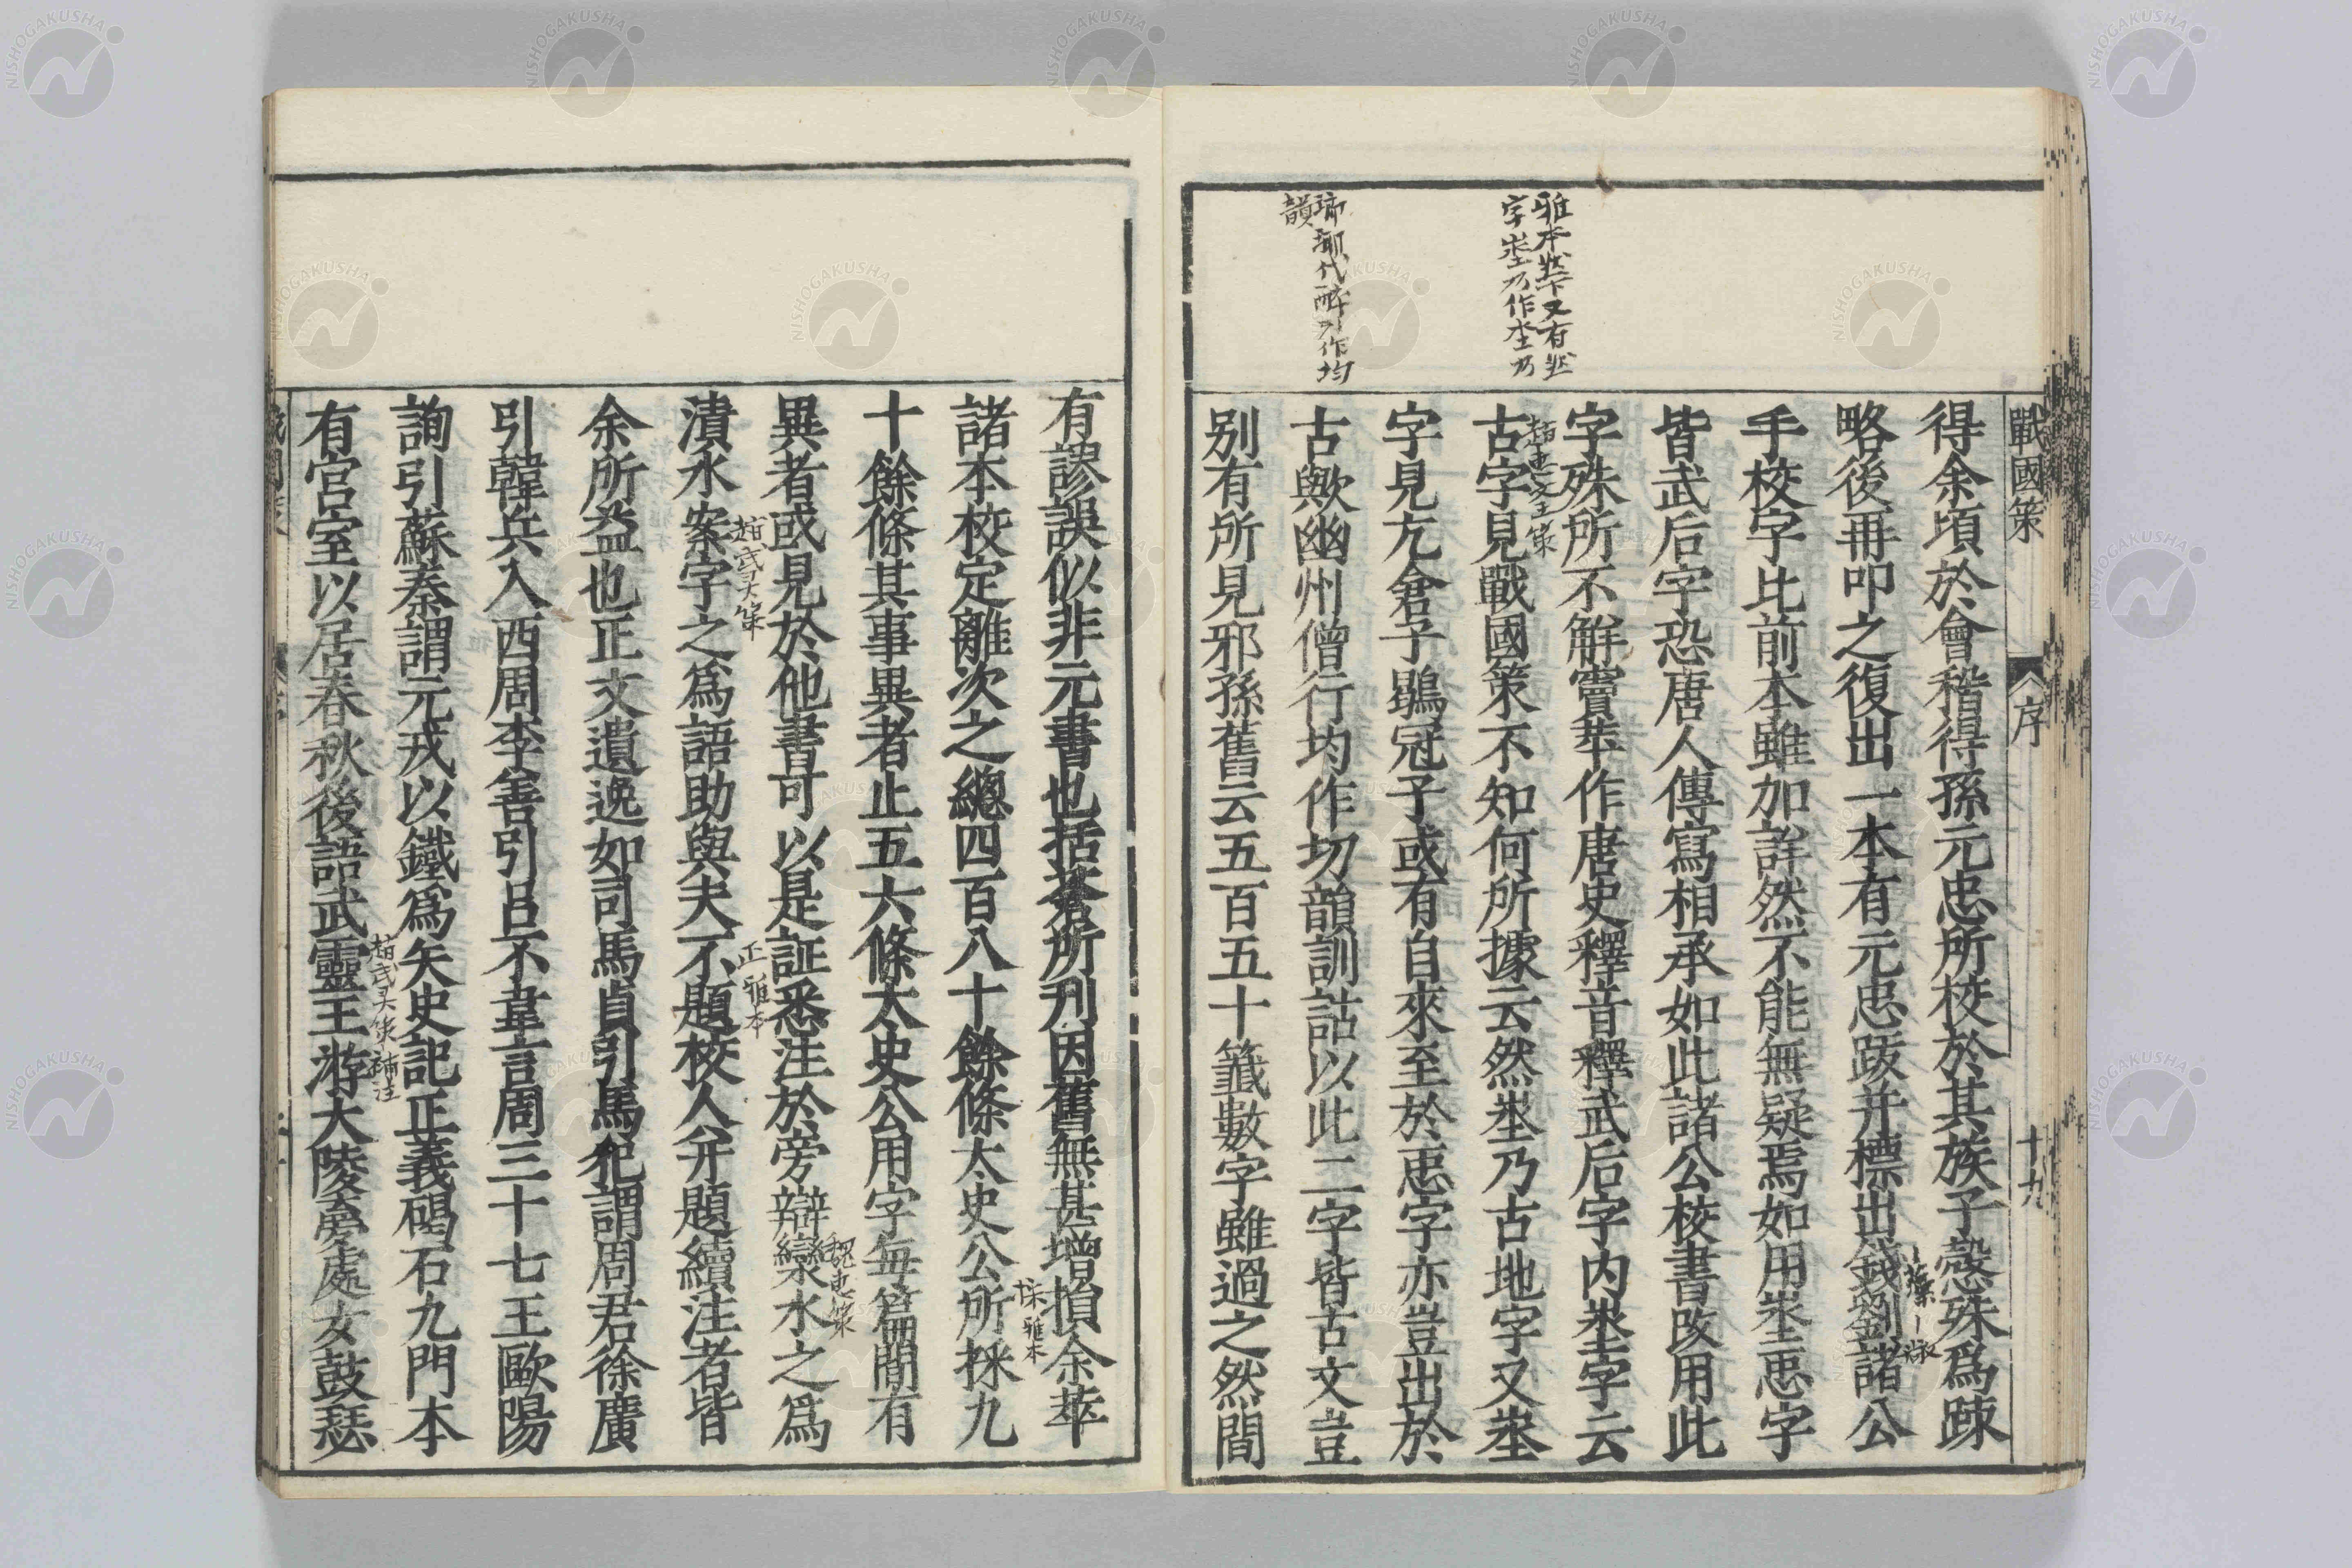 戰國策
序
十九
得余頃於會稽得孫元忠所校於其族子愨殊爲踈
略後再叩之復出一本有元忠跋并標出錢劉諸公
手校字比前本雖加詳然不能無疑焉如用埊恵字
皆武后字恐唐人傳寫相承如此諸公校書改用此
字殊所不觧竇苹作唐史釋音釋武后字内埊字云
古字見戰國策不知何所據云然埊乃古地字又埊
字見亢倉子鶡冠子或有自來至於恵字亦豈出於
古歟幽州僧行均作切韻訓詁以此二字皆古文豈
别有所見邪孫舊云五百五十籤數字雖過之然間
雅本埊下又有埊
字埊乃作埊乃
代醉乃作均
韻
趙恵文王策
有謬誤似非元書也括蒼所刋因舊無甚增損余萃
諸本校定離次之總四百八十餘條太史公所採九
十餘條其事異者止五六條太史公用字每篇間有
異者或見於他書可以是証悉注於旁辯灓水之爲
漬水案字之爲語助與夫不題校人并題續注者皆
余所益也正文遺逸如司馬貞引馬犯謂周君徐廣
引韓兵入西周李善引吕不韋言周三十七王歐陽
詢引蘇秦謂元戎以鐵爲矢史記正義碣石九門本
有宫室以居春秋後語武靈王游大陵夢處女鼓瑟
採雅本
魏恵策
趙武灵策
正雅本
趙武灵策補注